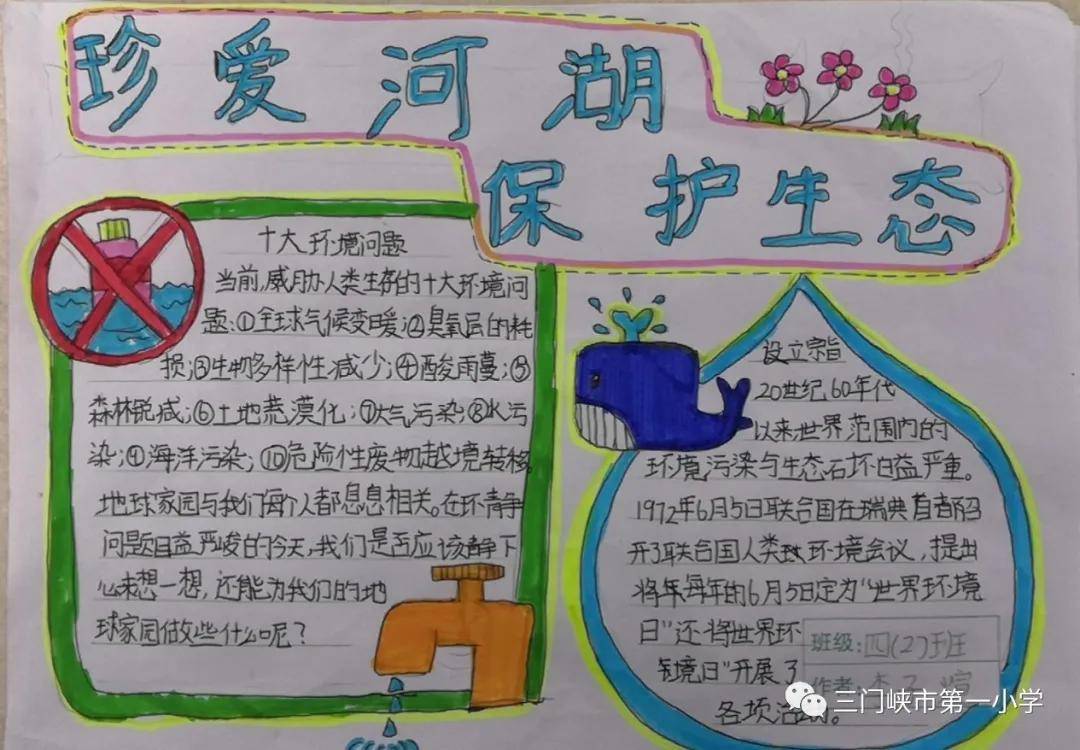 珍爱河湖
保护生态
十大环境问题
当前,威胁人类生存的十大环境问
题:①全球气候变暖;②臭氧层的耗
损;③生物多样性减少;④酸雨蔓;⑤
森林锐减;⑥土地荒漠化;⑦大气污染;⑧水污
染;⑨海洋污染;⑩危险性废物越境转移
地球家园与我们每个人都息息相关。在环境
问题日益严峻的今天,我们是否应该静下
心来想一想,还能为我们的地
球家园做些什么呢?
设立宗旨
20世纪60年代
以来,世界范围内的
环境污染与生态破坏日益严重。
1972年6月5日联合国在瑞典首都召
开了联合国人类环境会议,提出
将每年的6月5日定为“世界环境
日”还将世界环
境日”开展了
各项活动。
班级:四(2)班
作者:李
三门峡市第一小学